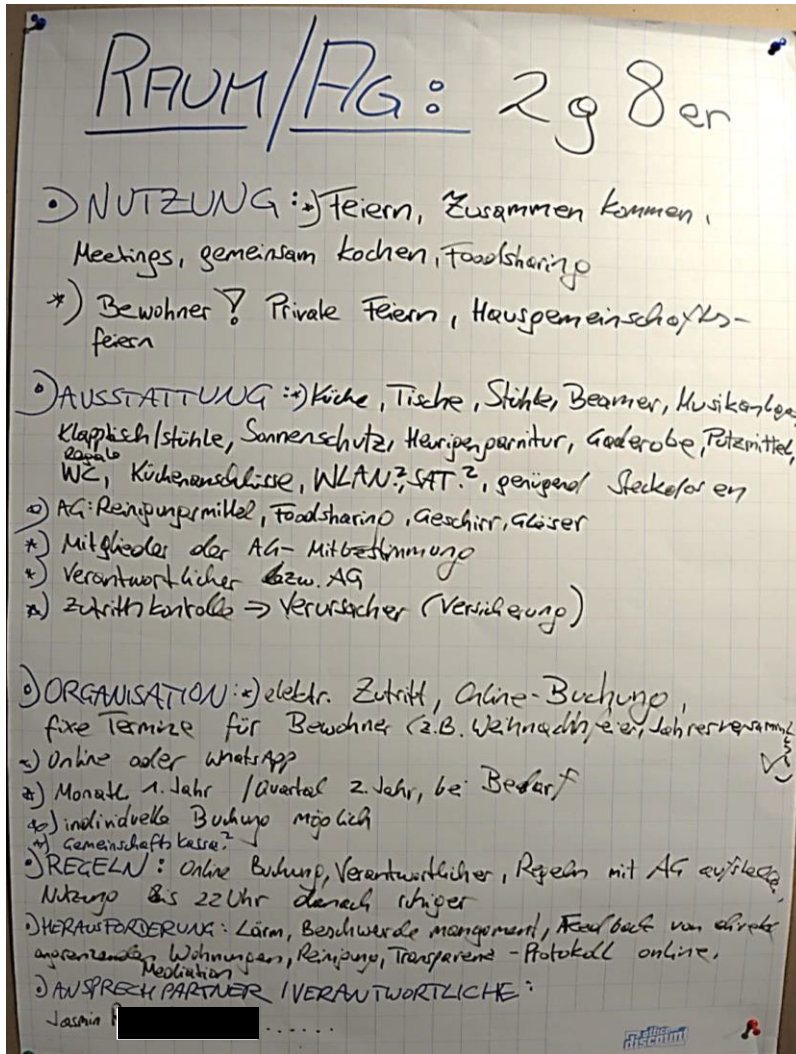 RAUM/AG: 2g8er
•) NUTZUNG: *) Feiern, Zusammen kommen,
Meetings, gemeinsam kochen, Foodsharing
*) Bewohner! Private Feiern, Hausgemeinschafts-
feiern
•) AUSSTATTUNG: *) Küche, Tische, Stühle, Beamer, Musikanlage,
Klapptisch/stühle, Sonnenschutz, Heurigengarnitur, Gaderobe, Putzmittel,
Regale
WC, Küchenanschlüsse, WLAN?, SAT?, genügend Steckdosen
*) AG: Reinigungsmittel, Foodsharing, Geschirr, Gläser
*) Mitglieder der AG - Mitbestimmung
*) Verantwortlicher bzw. AG
*) Zutrittkontrolle => Verursacher (Versicherung)
•) ORGANISATION: *) elektr. Zutritt, Online-Buchung,
fixe Termine für Bewohner (z.B. Weihnachtsfeier, Jahresversamml
*) Online oder WhatsApp
*) Monatl. 1. Jahr / Quartal 2. Jahr, bei Bedarf
*) individuelle Buchung möglich
*) Gemeinschaftskassa?
•) REGELN: Online Buchung, Verantwortlicher, Regeln mit AG
Nutzung bis 22 Uhr danach ruhiger
•) HERAUSFORDERUNG: Lärm, Beschwerde mangement, Feedback von direkt
angrenzenden Wohnungen, Reinigung, Transparenz - Protokoll online,
Mediation
•) ANSPRECHPARTNER / VERANTWORTLICHE:
Jasmin ......
discount